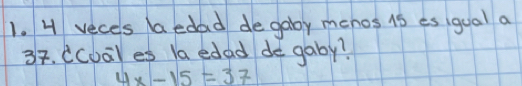 1. 4 veces la edad de gaby menos 15 es igual a
37. ¿Cuál es la edad de gaby?
4x - 15 = 37